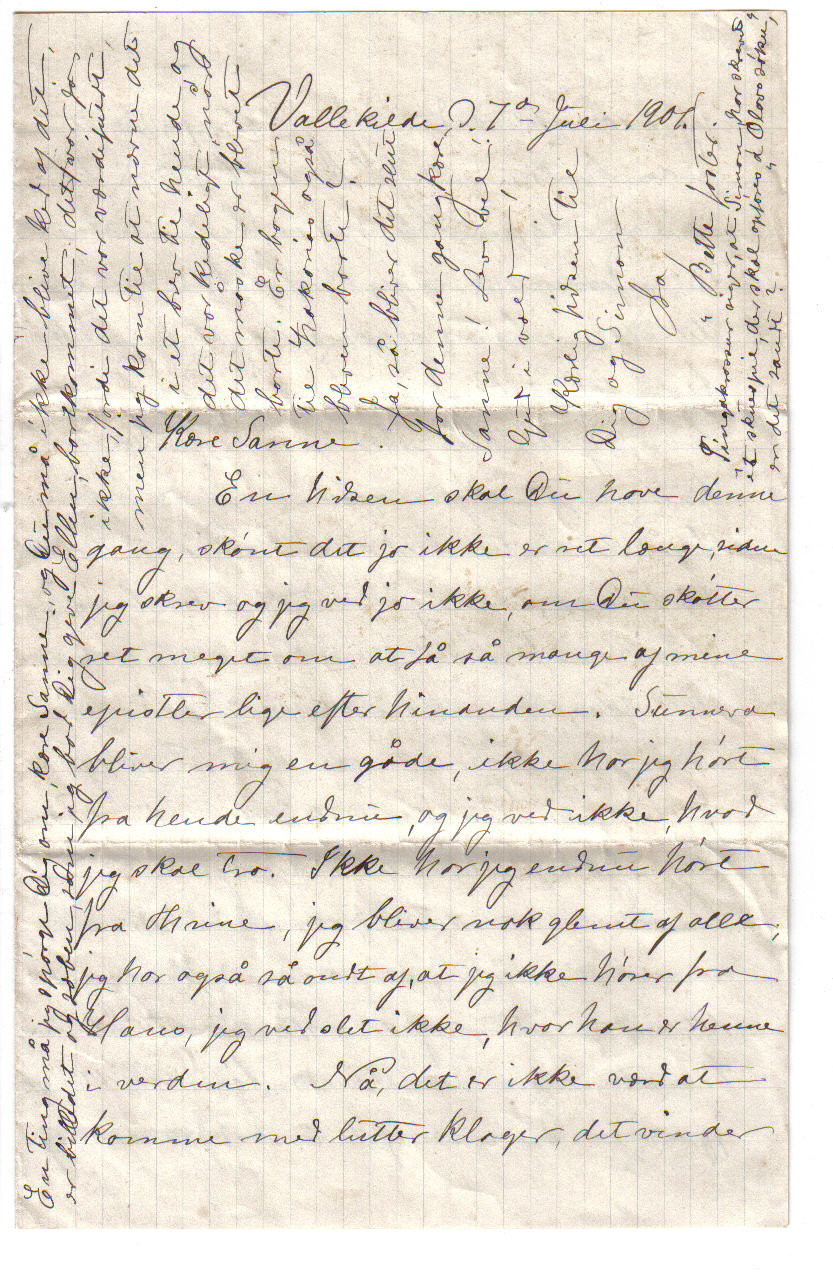 Vallekilde, d. 7de Juli 1901.
Kære Sanne.
En hilsen skal Du have denne
gang, skønt det jo ikke er ret længe, siden
jeg skrev og jeg ved jo ikke, om Du skøtter
ret meget om at få så mange af mine
epistler lige efter hinanden. Sunneva
bliver mig en gåde, ikke har jeg hørt
fra hende endnu, og jeg ved ikke, hvad
jeg skal tro. Ikke har jeg endnu hørt
fra Thrine, jeg bliver nok glemt af alle,
jeg har også så ondt af, at jeg ikke hører fra
Hans, jeg ved slet ikke, hvor han er henne
i verden. Nå, det er ikke værd at
komme med lutter klager, det vinder
En ting må jeg spørge Dig om, kære Sanne, og Du må ikke blive ked af det,
er billedet og sæben, som jeg bad Dig give Ellen, bortkommet, det var jo
ikke, fordi det var værdifuldt,
men jeg kom til at nævne det
i et brev til hende og
det var kedeligt, når
det måske er blevet
borte. Er bogen
til Hákonios også
bleven borte?
Ja, så bliver det slut
for denne gang kære
Sanne! Lev vel!
Gud i vold!
Kærlig hilsen til
Dig og Simon
fra
"Bette foster."
"Pingakrossur" siger, at Simon har skrevet
et skuespil, der skal opføres á Olavsøku,
er det sandt?